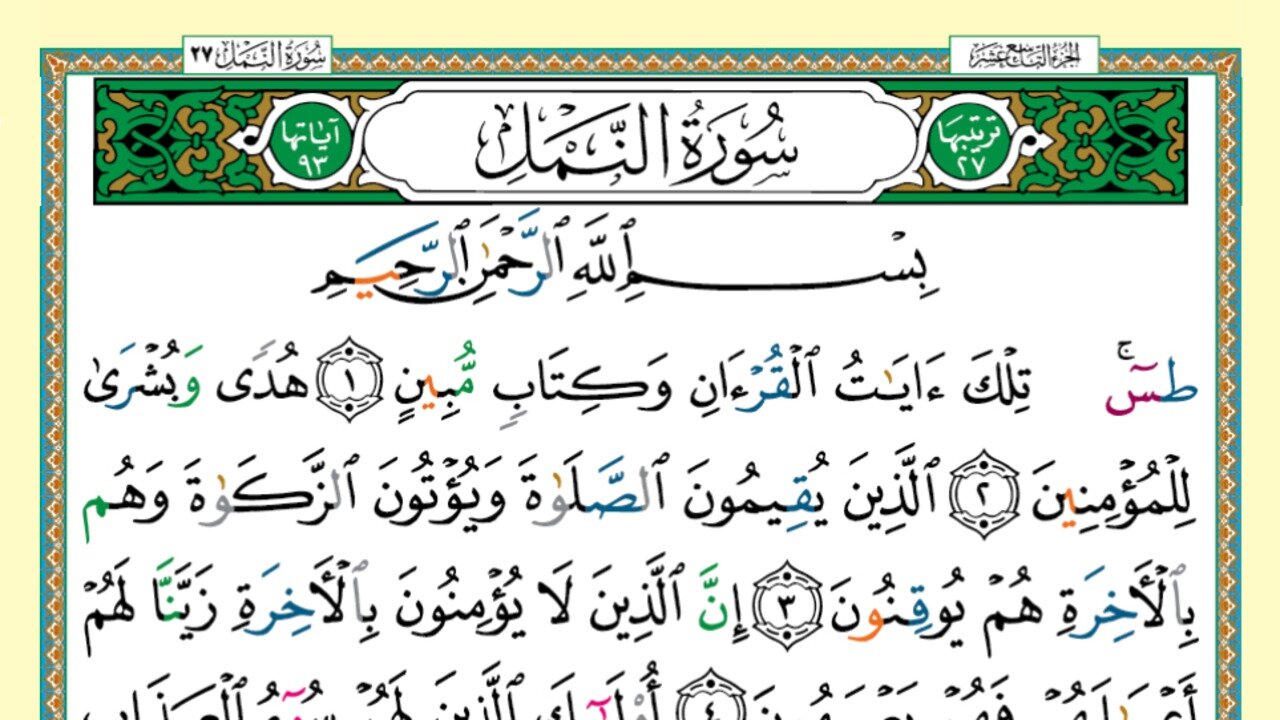 الجزء التاسع عشر
سورة النمل ٢٧
ترتيبها ٢٧
سُورَةُ النَّمْلِ
آياتها ٩٣
بِسْمِ ٱللَّهِ ٱلرَّحْمَٰنِ ٱلرَّحِيمِ
طسٓۚ تِلْكَ ءَايَٰتُ ٱلْقُرْءَانِ وَكِتَابٍ مُّبِينٍ ١ هُدًى وَبُشْرَىٰ
لِلْمُؤْمِنِينَ ٢ ٱلَّذِينَ يُقِيمُونَ ٱلصَّلَوٰةَ وَيُؤْتُونَ ٱلزَّكَوٰةَ وَهُم
بِٱلْأَخِرَةِ هُمْ يُوقِنُونَ ٣ إِنَّ ٱلَّذِينَ لَا يُؤْمِنُونَ بِٱلْأَخِرَةِ زَيَّنَّا لَهُمْ
أَعْمَٰلَهُمْ فَهُمْ يَعْمَهُونَ ٤ أُو۟لَٰٓئِكَ ٱلَّذِينَ لَهُمْ سُوٓءُ ٱلْعَذَابِ